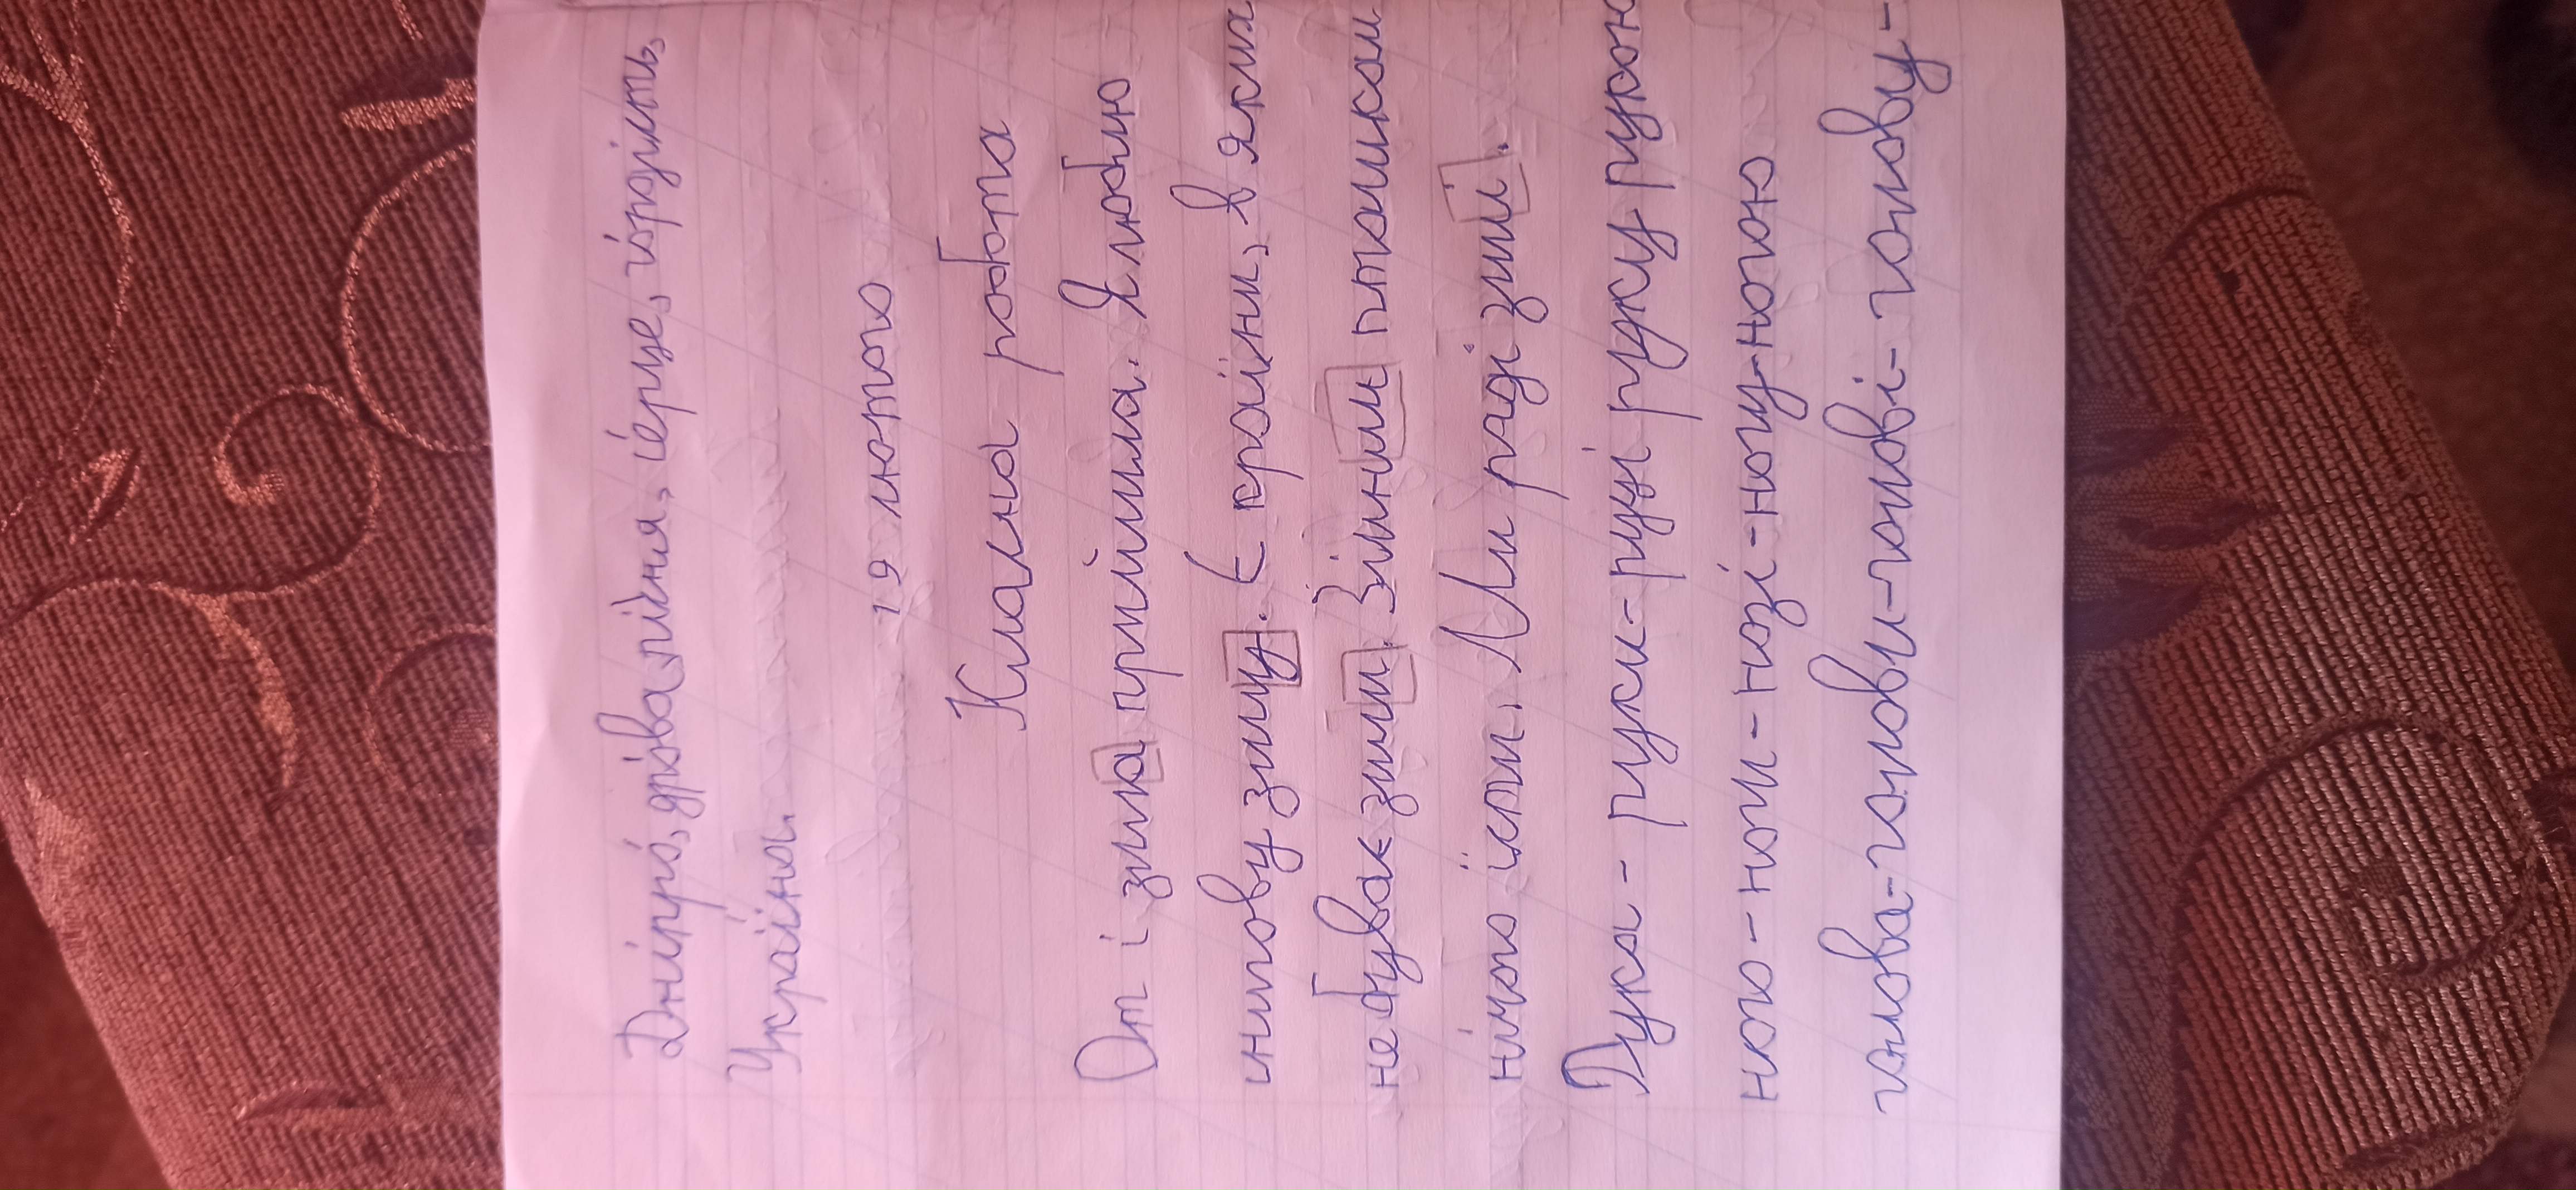 Дніпро́, дрова́, пі́вня, се́рце, го́роді́ть,
Украї́на.
19 лютого
Класна робота
От і зима прийшла. Я люблю
снігову зиму. Є країни, в яких
не буває зими. Зимими пташкам
нічого їсти. Ми раді зимі.
Рука - руки - руці руку рукою
нога - ноги - нозі - ногу - ногою
голова - голови - голові - голову -